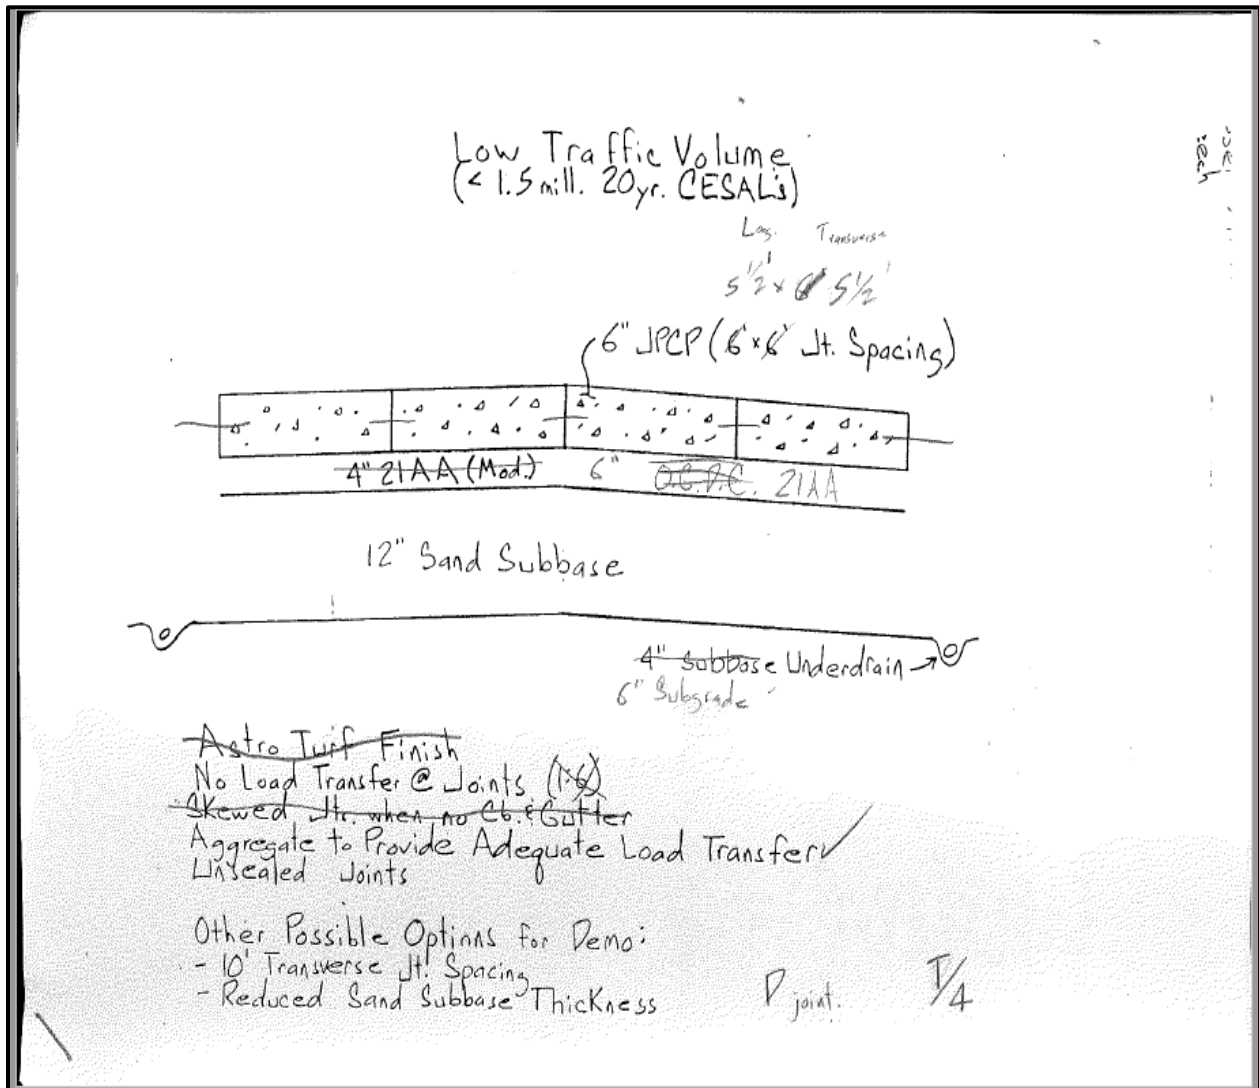 Low Traffic Volume
(< 1.5 mill. 20yr. CESAL's)
Long. Transverse
5 1/2' x 6 5 1/2'
6" JPCP (6' x 6' Jt. Spacing)
4" 21AA (Mod.) 6" O.G.D.C. 21AA
12" Sand Subbase
4" Subbase Underdrain →
6" Subgrade
Astro Turf Finish
No Load Transfer @ Joints (1:6)
Skewed Jts. when no Cb. & Gutter
Aggregate to Provide Adequate Load Transfer ✓
Unsealed Joints
Other Possible Options for Demo:
- 10' Transverse Jt. Spacing
- Reduced Sand Subbase Thickness
D joint. T/4